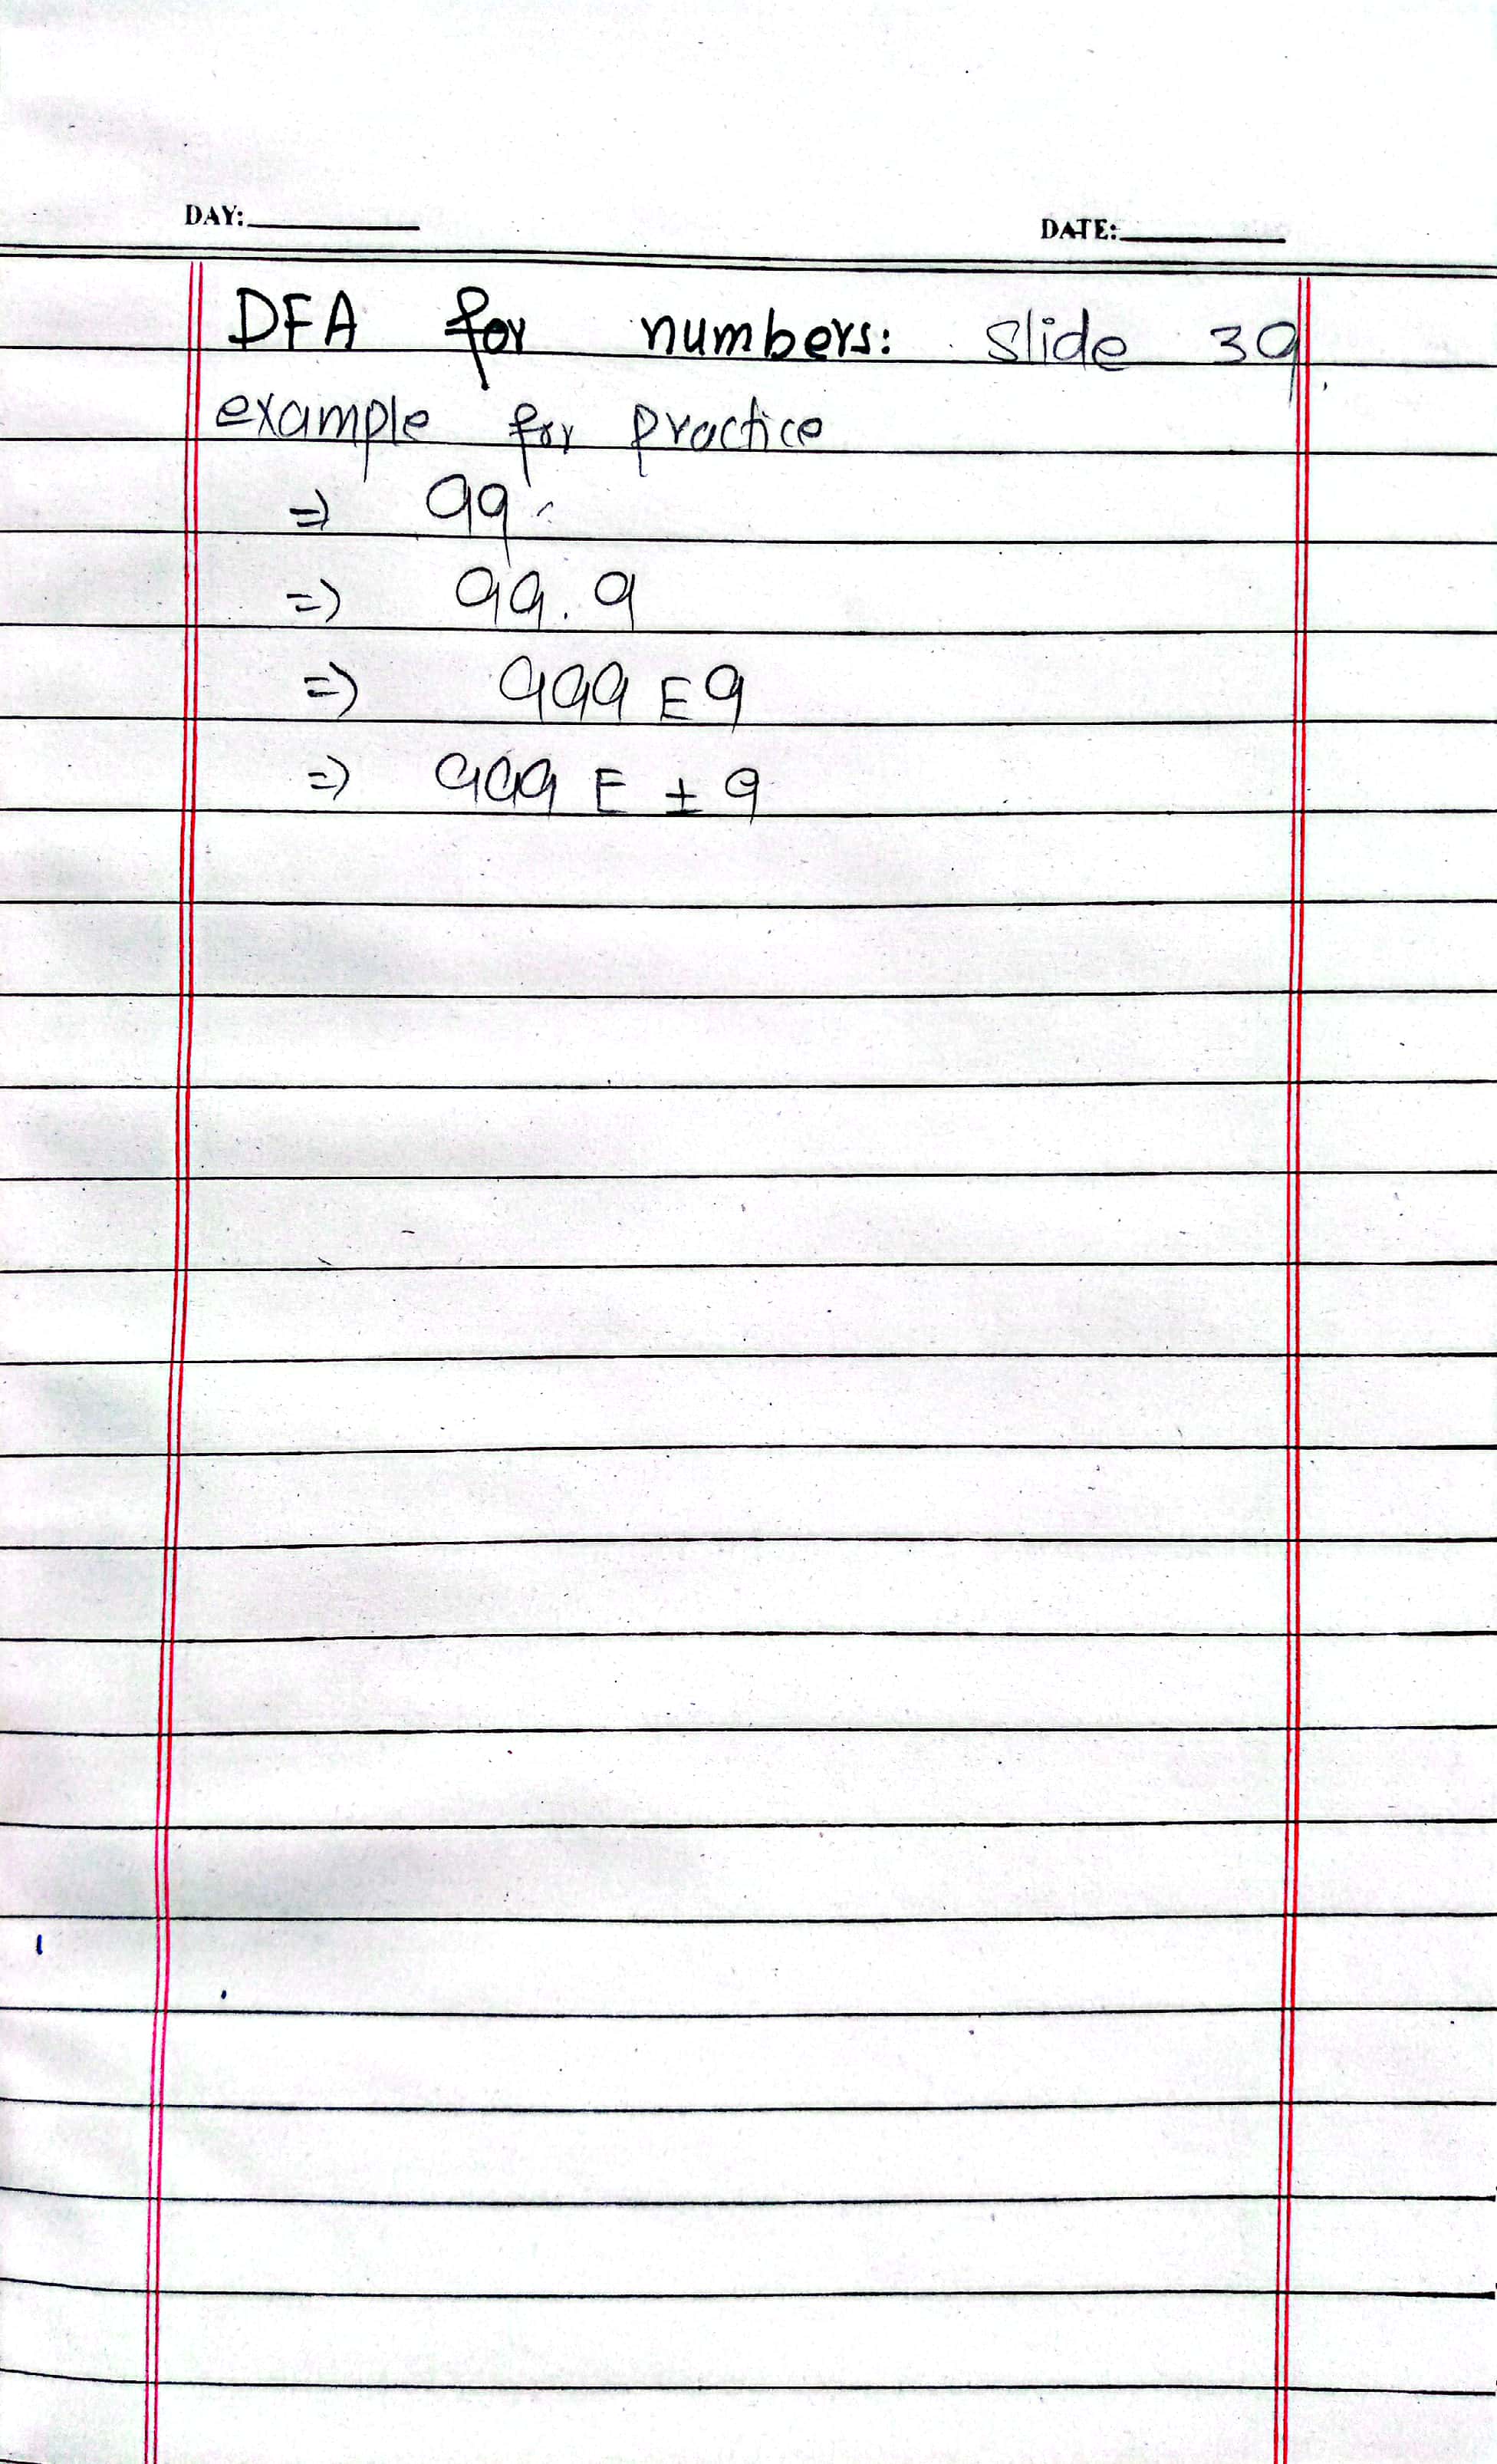 DAY: DATE:
DFA for numbers: Slide 39
example for practice
=> 99
=> 99.9
=> 999 E9
=> 999 E ± 9